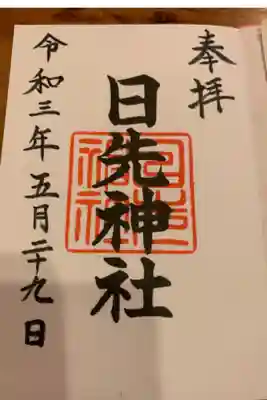 奉拝
日先神社
令和三年五月二十九日